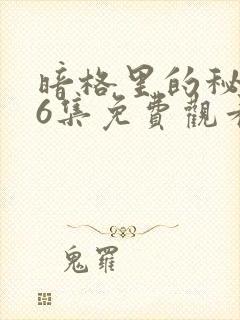 暗格里的秘
6集免費觀看
鬼羅